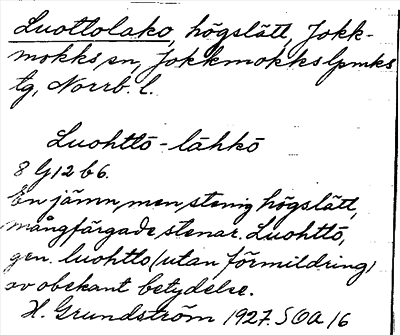 Luottolako, högslätt, Jokk-
mokks sn, Jokkmokks lpmks
tg, Norrb. l.
Luohttō-lăhkō
8 G12 b 6.
En jämn, men stenig högslätt,
mångfärgade stenar. Luohttō,
gen. luohtto (utan förmildring)
av obekant betydelse.
H. Grundström 1927. SOA 16